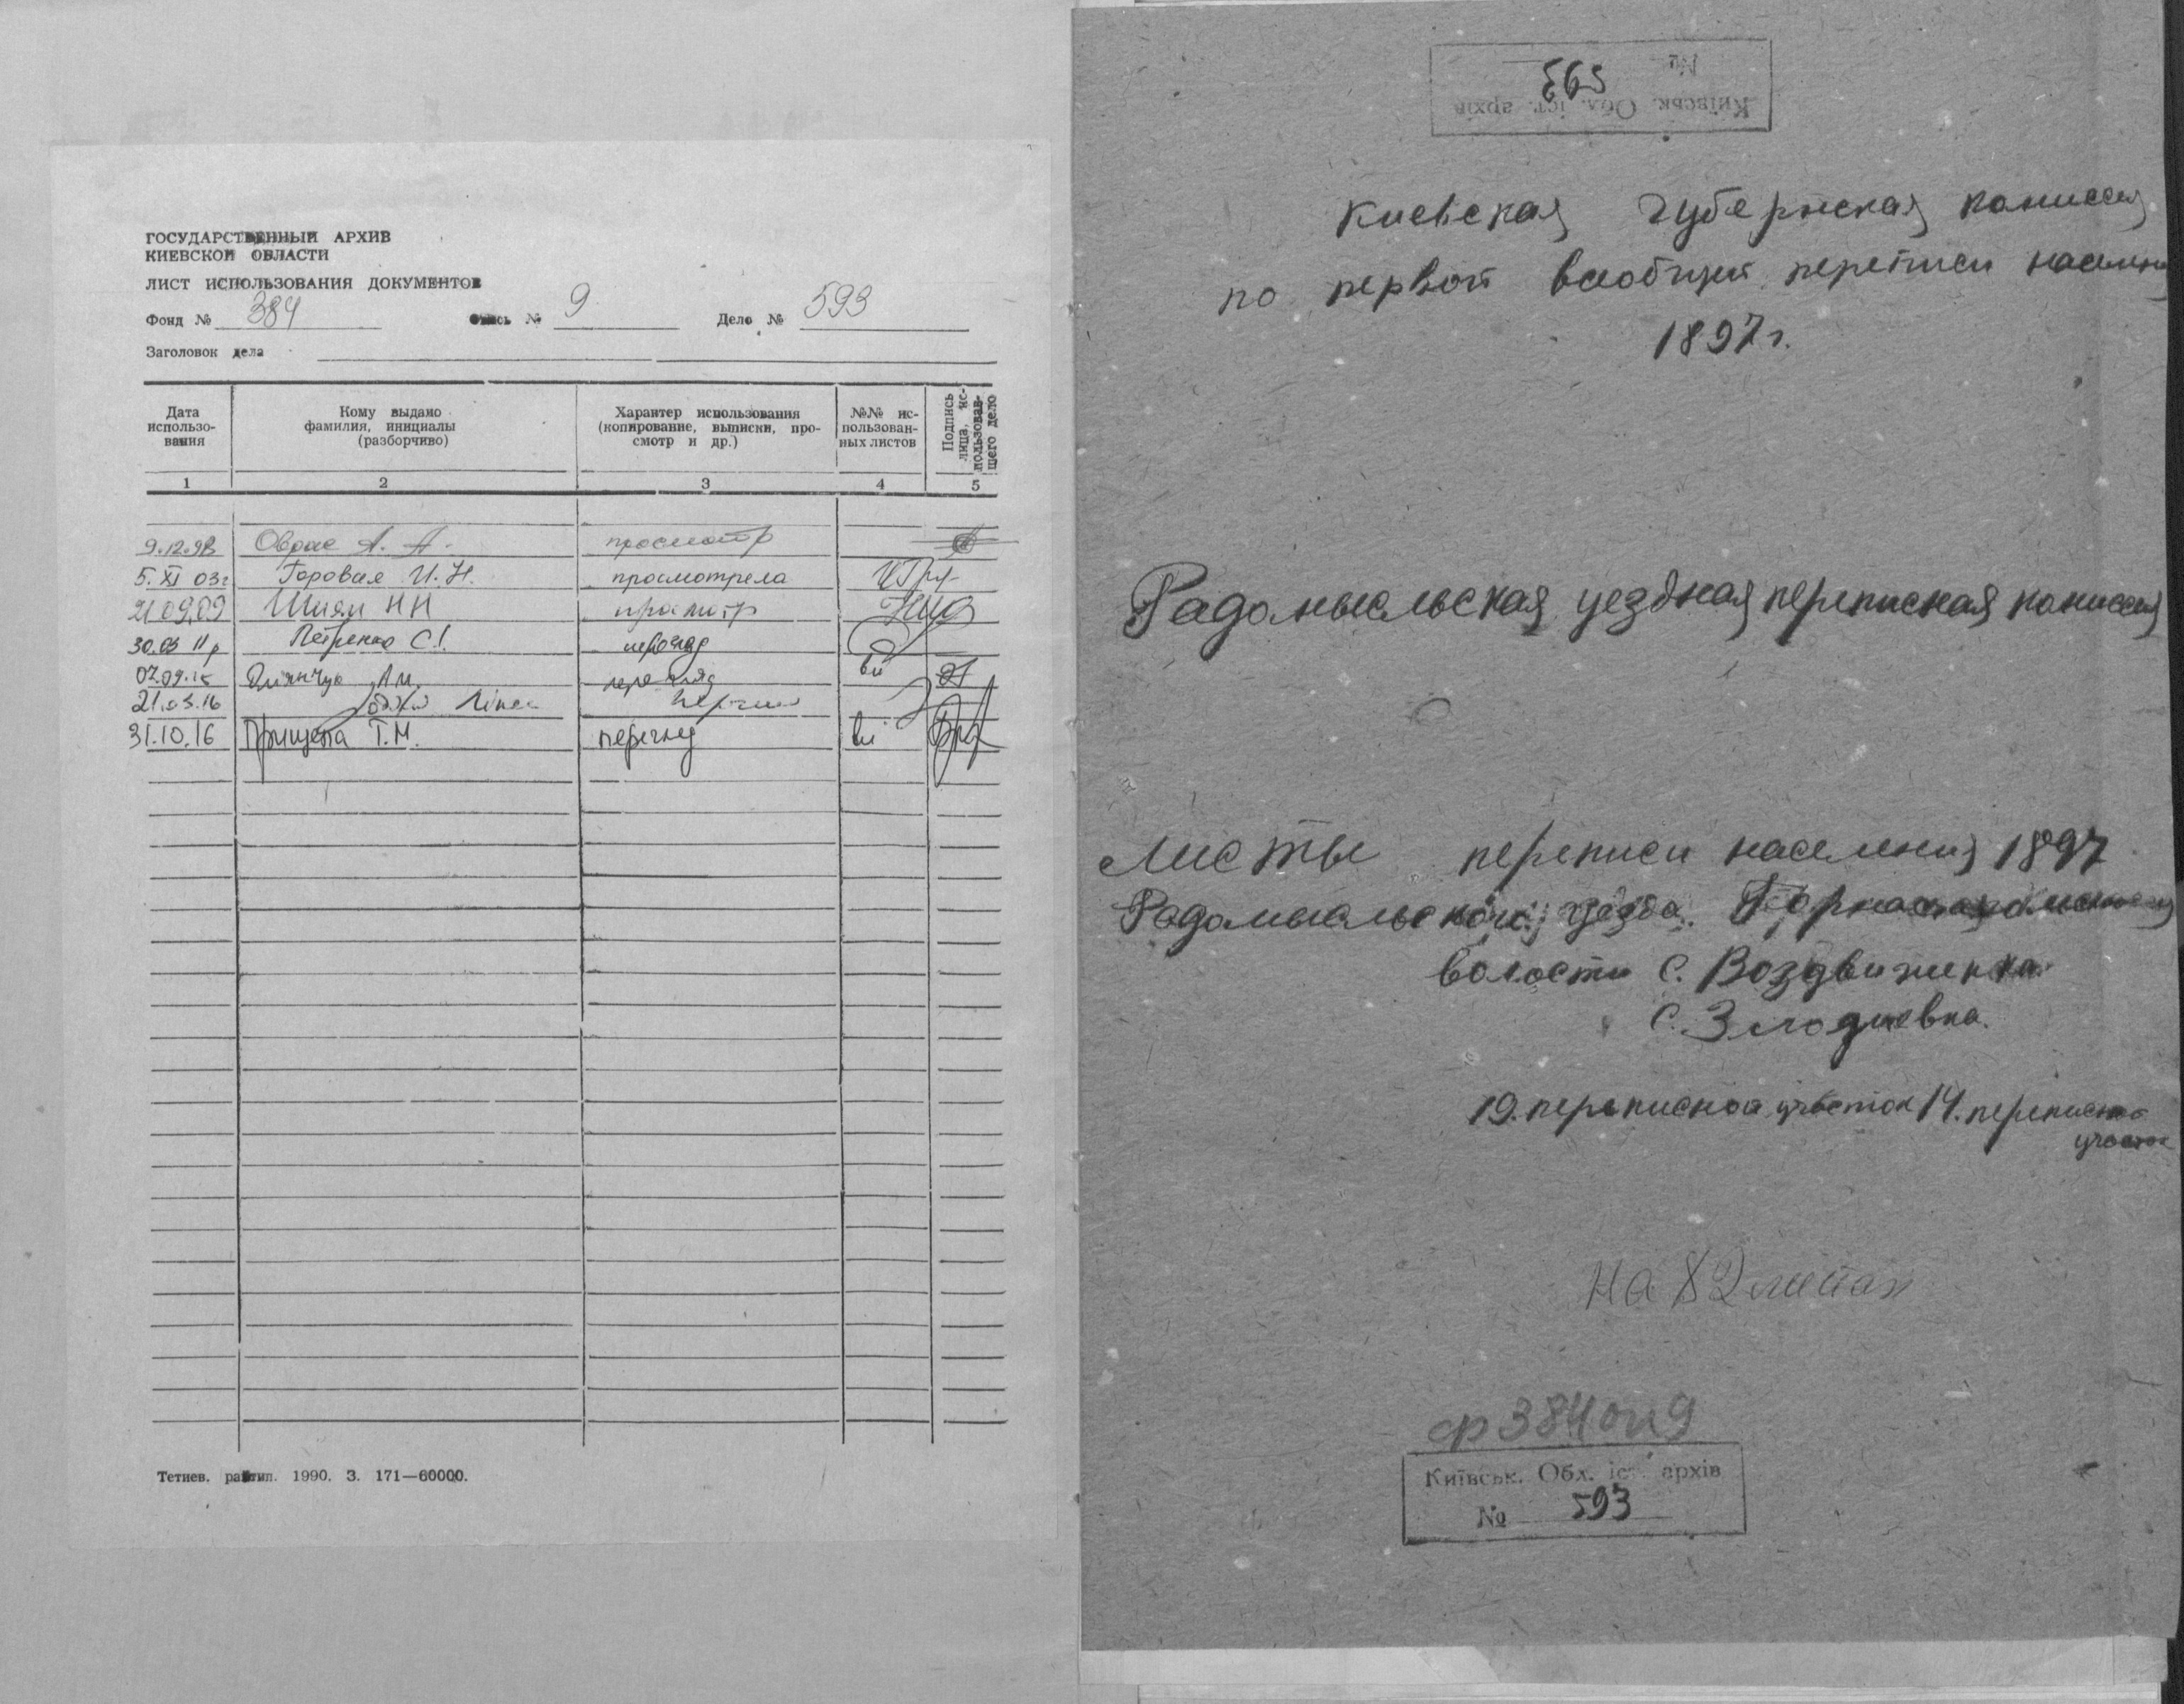 ГОСУДАРСТВЕННЫЙ АРХИВ
КИЕВСКОЙ ОБЛАСТИ
ЛИСТ ИСПОЛЬЗОВАНИЯ ДОКУМЕНТОВ
Фонд № 384 Опись № 9 Дело № 593
Заголовок дела
Дата использо-вания
Кому выдано фамилия, инициалы (разборчиво)
Характер использования (копирование, выписки, про-смотр и др.)
№№ ис-пользован-ных листов
Подпись лица, ис-пользовав-щего дело
1 2 3 4 5
9.12.98 А. А. просмотр
5.XI 03г Горовая И.Н. просмотрела
21.09.09 Шиян НН просмотр
30.03 11р Петренко С.І. перегляд
07.09.15 А.М. перегляд ві
21.03.16
31.10.16 Прищепа Т.М. перегляд ві
Тетиев. райтип. 1990. З. 171—60000.
Київськ. Обл. іст. архів
№ 593
Киевская губернская комиссия
по первой всеобщей переписи населения
1897 г.
Радомысльская уездная переписная комиссия
Листы переписи населения 1897
Радомысльского уезда. Горностайпольской
волости С. Воздвиженка.
С. Злодиевка.
19. переписной участок 14. переписной
участок
На 82 листах
ф 384 оп 9
Київськ. Обл. іст. архів
№ 593